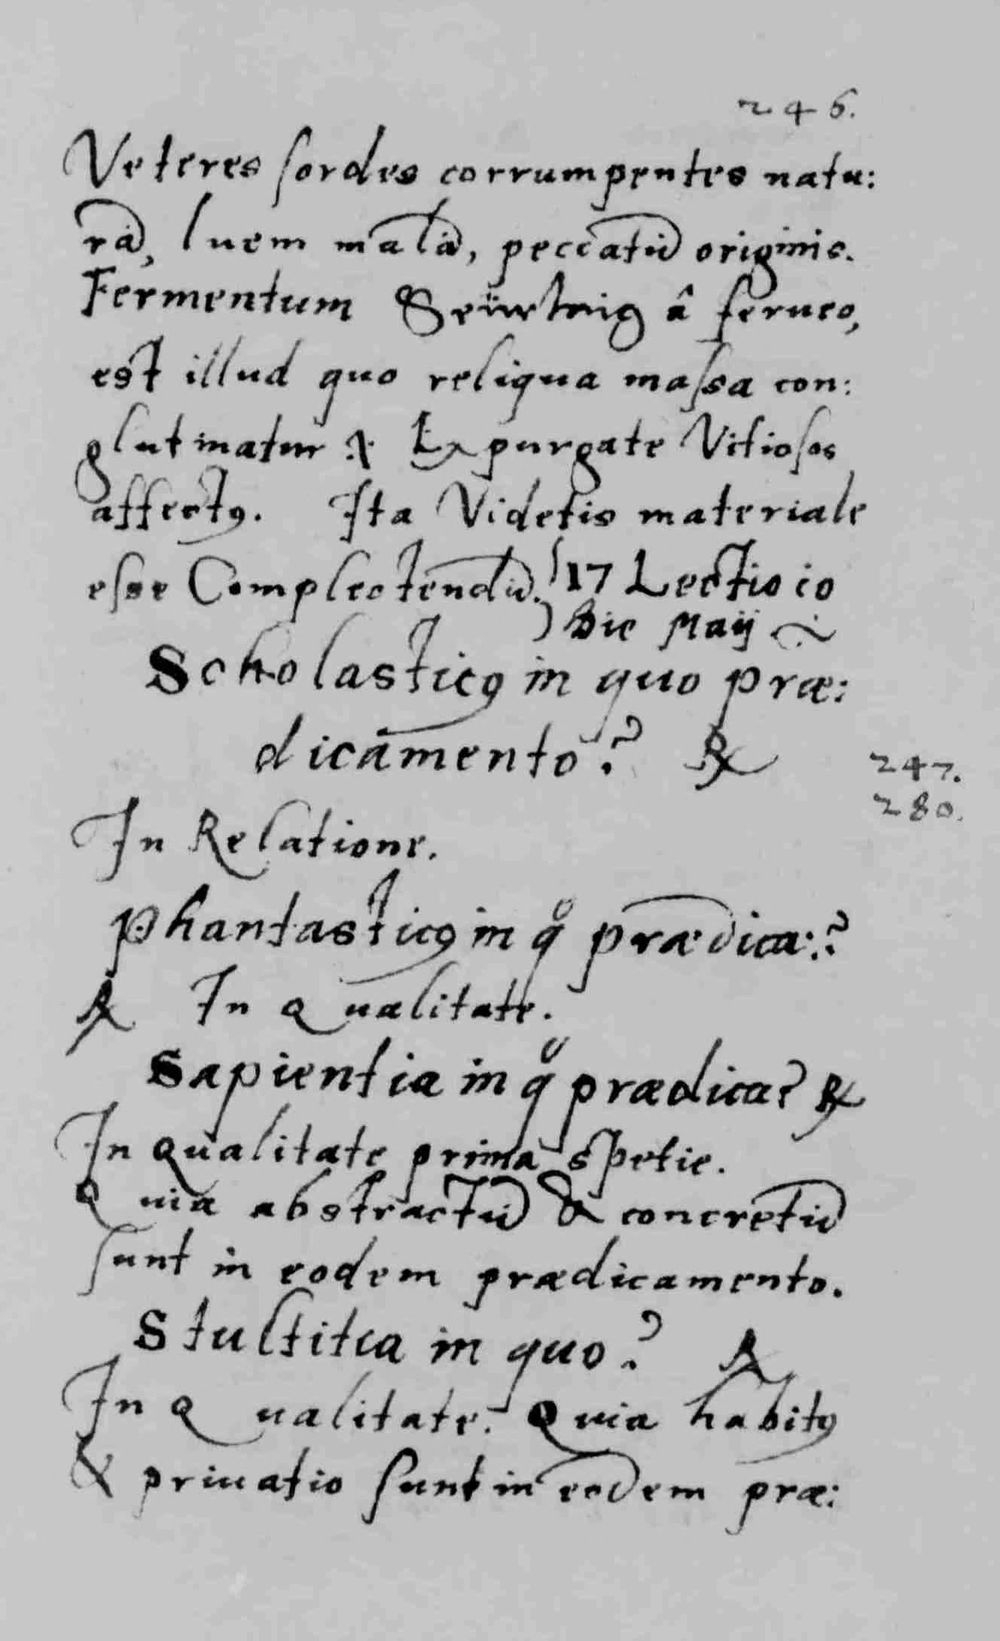 246.
Veteres sordes corrumpentes natu:
rā, luem malā, peccatū originis.
Fermentum Seürtaig â ferueo,
est illud quo reliqua massa con:
glutinatur. Expurgate Vitiosos
affectꝰ. Ita Videtis materiale
esse Complectendū. 17 Lectio io
Die Maij
Scholasticꝰ in quo præ:
dicamento? ℞
247.
280.
In Relatione.
Phantasticꝰ in qͦ prædica:?
℞ In Qualitate.
Sapientia in qͦ prædica? ℞
In Qualitate prima spetie.
Quia abstractū & concretū
sunt in eodem prædicamento.
Stultitia in quo? ℞
In Qualitate. Quia habitꝰ
& priuatio sunt in eodem præ: